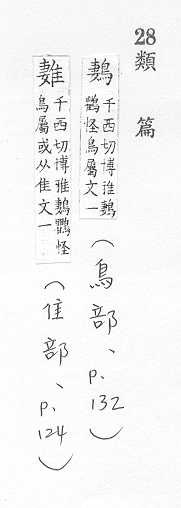 28
類篇
鶈
千西切博雅鶈
怪鳥屬文一
（鳥部、p.132）
千西切博雅鶈怪
鳥屬或从隹文一
（隹部、p.124）